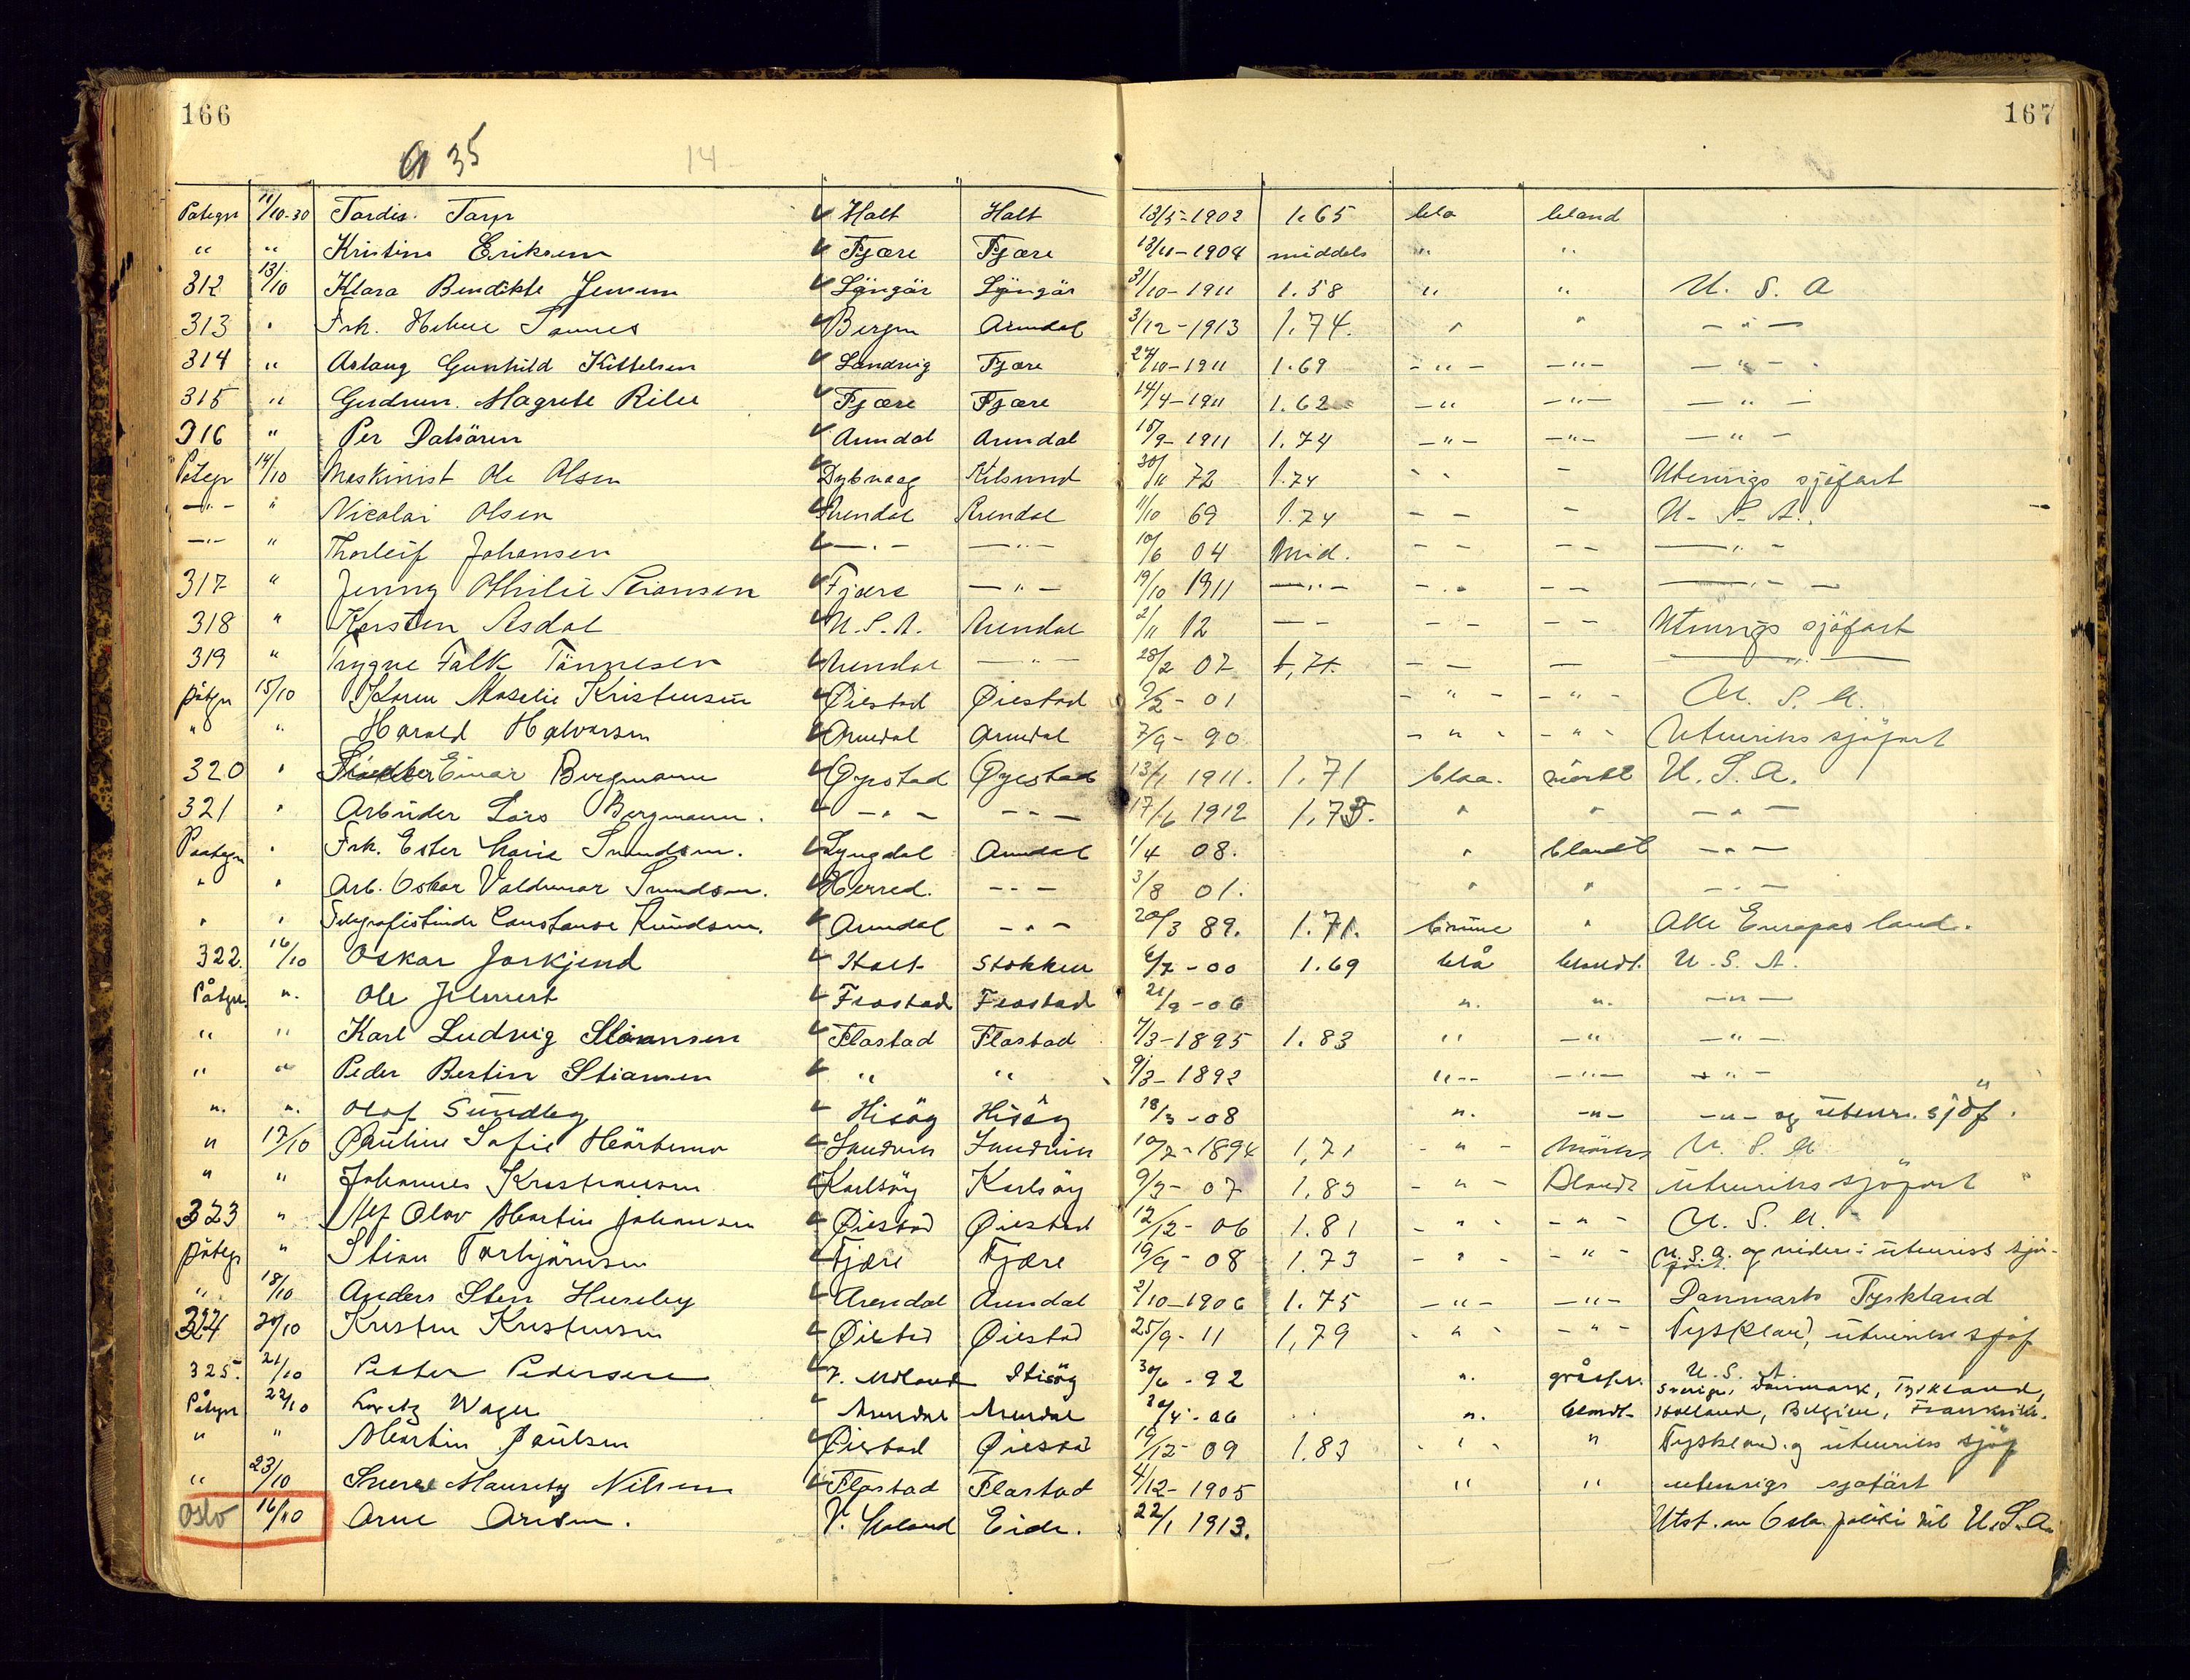 166
167
a 35
14
Påtegn 11/10-30 Tordis Tarp Holt Holt 13/5-1902 1.65 blå bland
" " Kristine Eriksen Fjære Fjære 13/10-1904 middels " "
312 13/10 Klara Bendikte Jensen Lyngør Lyngør 31/10-1911 1.58 " " U. S. A
313 " Frk. Sannes Bergen Arendal 3/12-1913 1.74. " " - " -
314 " Aslaug Gunhild Kittelsen Landvig Fjære 27/10-1911 1.69 - " - - " - - " -
315 " Gudrun Magrete Fjære Fjære 14/4-1911 1.62 - " - " - - " -
316 " Per Arendal Arendal 15/9-1911 1.74 - " - - " - - " -
Påtegn 14/10 Maskinist Ole Olsen Dybvaag Kilsund 30/11 72 1.74 " - Utenrigs sjøfart
- " - " Nicolai Olsen Arendal Arendal 11/10 69 1.74 - - - U. S. A.
- " - " Thorleif Johansen - " - - " - 10/6 04 Mid. - - - - - " -
317 " Jenny Othilie Fjære - " - 19/10 1911 - " - - " - - - - " -
318 " Karsten Asdal U. S. A. Arendal 2/11 12 - - - - - - Utenrigs sjøfart
319 " Trygve Falk Tønnesen Arendal - " - 28/2 07 1,71. - - - - " -
påtgn 15/10 Karen Kristensen Øiestad Øiestad 9/2 - 01 - " - - " - U. S. A.
" " Harald Halvorsen Arendal Arendal 7/9 - 90 - " - - " - Utenriks sjøfart
320 " Einar Bergmann Øyestad Øyestad 13/1 1911. 1.71 blaa. mørkt U. S. A.
321 " Arbeider Lars Bergmann. - " - - - - 17/6 1912 1,73. " " - " -
Paategn " Frk. Ester Marie Lyngdal Arendal 1/4 08. " blandt - " -
" " Arb. Oskar Valdemar Herred. - - - 3/8 01. " " - " -
" " Telegrafistinde Constanse Knudsen. Arendal - " - 20/3 89. 1.71. brune " Alle Europas land.
322. 16/10 Oskar Jorkjend Holt Stokken 6/7 - 00 1.69 blå blandt. U. S. A.
Påtgn. " Ole Flostad Flostad 21/9 - 06 " " - " -
" " Karl Ludvig Stiansen Flostad Flostad 7/3-1895 1.83 " - " - " -
" " Peder Bertin Stiansen " " 9/3-1892 " - - - " - - " -
" " Olaf Sundby Hisøy Hisøy 18/3 - 08 " - " - - " - og utenr. sjøf.
" 17/10 Pauline Sofie Landvik Landvik 10/7-1894 1,71 - " - mørkt U. S. A
" " Johannes Kristiansen Karlsøy Karlsøy 9/3 - 07 1,83 - " - Blandt utenriks sjøfart
323 " Alf Olav Martin Johansen Øiestad Øiestad 12/12 - 06 1.81 - " - - " - U. S. A.
påtegn " Stian Torbjørnsen Fjære Fjære 19/9 - 08 1.73 - " - - " - U. S. A. og videre i utenriks sjøfart.
" 18/10 Anders Sten Huseby Arendal Arendal 2/10-1906 1.75 - " - - " - Danmark Tyskland
324 20/10 Kristen Kristensen Øiestad Øiestad 25/9 - 11 1,79 - " - - " - Tyskland, utenriks sjøf
325. 21/10 Petter Pedersen V. Moland Hisøy 30/6 - 92 " gråspr. U. S. A.
Påtgn 22/10 Lorentz Wager Arendal Arendal 20/4 - 06 " blandt Sverige, Danmark, Tyskland,
Holland, Belgien, Frankrike.
" " Martin Paulsen Øiestad Øiestad 19/12 - 09 1.83 - " - " Tyskland og utenriks sjøf
" 23/10 Sverre Mauritz Nilsen Flostad Flostad 4/12-1905 " " utenrigs sjøfart
Oslo 16/10 Arne Aresen. V. Moland Eide. 22/1 1913. Utst. av Oslo politi til U. S. A.